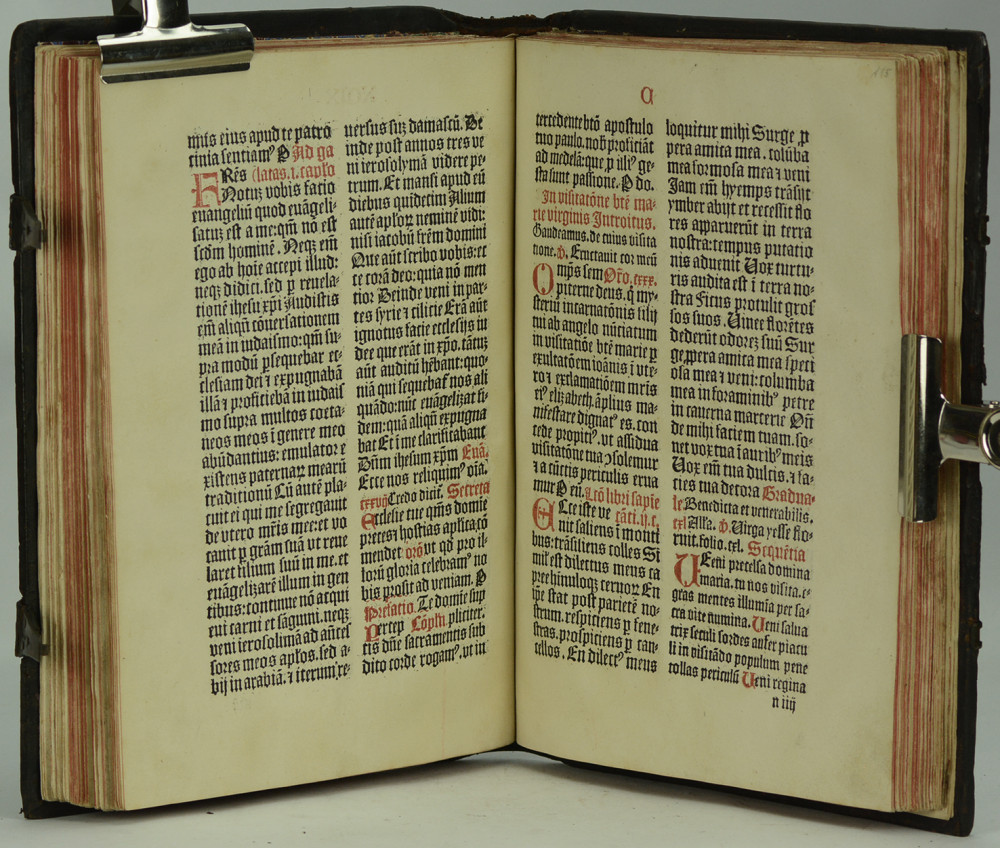 mis eius apud te patro
cinia sentiam⁹ P Ad ga
Rēs latas. i. caplo
Notuz vobis facio
euangeliū quod euāgeli-
satuz est a me: qm̄ nō est
scdm hominē. Neqz em̄
ego ab hoīe accepi illud:
neqz didici. sed p reuela-
tionē ihesu xp̄i Audistis
em̄ aliqñ cōuersationem
meā in iudaismo: qm̄ su-
pra modū psequebar ec-
clesiam dei ⁊ expugnabā
illā ⁊ proficiebā in iudais
mo supra multos coeta-
neos meos i genere meo
abūdantius: emulator e
xistens paternaꝝ mearū
traditionū Cū autē pla-
cuit ei qui me segregauit
de vtero mr̄is mee: et vo
cauit p grām suā vt reue
laret filium suū in me. et
euāgelizarē illum in gen
tibus: continue nō acqui
eui carni et sāguini. neqz
veni ierosolimā ad añces
sores meos aplos. sed a-
bij in arabiā. ⁊ iterum re-
uersus suz damascū. De
inde post annos tres ve
ni ierosolymā videre pe-
trum. Et mansi apud eū
diebus quīdecim Alium
autē aploꝝ neminē vidi:
nisi iacobū frēm domini
Que aūt scribo vobis: et
ce corā deo: quia nō men
tior Deinde veni in par-
tes syrie ⁊ cilicie Erā aūt
ignotus facie ecclesijs iu
dee que erāt in xp̄o. tātuz
aūt auditū hēbant: quo-
niā qui sequebaf nos ali
quādo: nūc euāgelizat fi-
dem: quā aliqñ expugna
bat Et i me clarificabant
Dūm ihesum xp̄m Euā.
Ecce nos reliquim⁹ oīa.
cxxvij Credo dicit̄. Secreta
Ecclesie tue qm̄s domie
preces ⁊ hostias aplica cō
mendet orō vt qd pro il-
lorū gloria celebram⁹ no
bis prosit ad veniam. P
Prefatio. Te domie sup
Percep Cōpln. pliciter.
tis dn̄e sacramentis sub
dito corde rogam⁹. vt in
a
tercedente btō apostolo
tuo paulo. nob̄ proficiāt
ad medelā: que p illi⁹ ge-
sta sunt passione. P do.
In visitatōne bt̄e ma-
rie virginis Introitus.
Gaudeamus. de cuius visita
tione. v̄. Eructauit cor meū
Omp̄s sem Orō. cxxx.
piterne deus. q̄ my-
steriū incarnatōnis filij
tui ab angelo nūciatum
in visitatiōe bt̄e marie p
exultatōem ioānis i vte-
ro ⁊ exclamatiōem mr̄is
ei⁹ elizabeth āplius ma-
nifestare dignat⁹ es. con
cede propici⁹. vt assidua
visitatōne tua ɔsolemur
⁊ a cūctis periculis erua
mur P eū. Lcō libri sapie
Ecce iste ve cāti. ij. c.
nit saliens i monti
bus: trāsiliens colles Si
mil' est dilectus meus ca
pree hinuloqz ceruoꝝ En
ip̄e stat post parietē no-
strum. respiciens p fene-
stras. prospiciens p can-
cellos. En dilect⁹ meus
loquitur mihi Surge. p
pera amica mea. colūba
mea formosa mea ⁊ veni
Jam em̄ hyemps trāsijt
ymber abijt et recessit flo
res apparuerūt in terra
nostra: tempus putatio
nis aduenit Uox turtu-
ris audita est i terra no-
stra Ficus protulit gros
sos suos. Uinee florētes
dederūt odorez suū Sur
ge ppera amica mea speci
osa mea ⁊ veni: columba
mea in foraminib⁹ petre
in cauerna macerie Oñ
de mihi faciem tuam. so-
net vox tua i aurib⁹ meis
Uox em̄ tua dulcis. ⁊ fa-
cies tua decora Gradua-
le Benedicta et venerabilis.
cxl Alla. v̄. Uirga yesse flo-
ruit. folio. cel. Sequētia
Ueni precelsa domina
maria. tu nos visita. e-
gras mentes illumīa per sa-
cra vite numina. Ueni salua
trix seculi sordes aufer piacu
li in visitādo populum pene
tollas periculū Ueni regina
n iiij